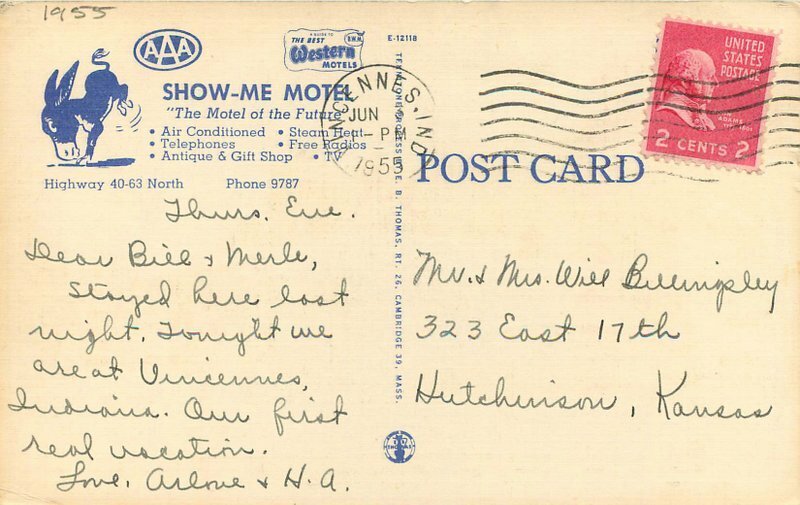 1955
AAA
A GUIDE TO
THE BEST B.W.M.
Western
MOTELS
E-12118
SHOW-ME MOTEL
"The Motel of the Future"
• Air Conditioned • Steam Heat
• Telephones • Free Radios
• Antique & Gift Shop • TV
Highway 40-63 North Phone 9787
VINCENNES, IND.
JUN
PM
1955
UNITED
STATES
POSTAGE
ADAMS
2 CENTS 2
POST CARD
B. THOMAS, RT. 26, CAMBRIDGE 39, MASS.
Thurs. Eve.
Dear Bill & Merle,
Stayed here last
night. Tonight we
are at Vincennes,
Indiana. Our first
real vacation.
Love, Arlove & H.A.
Mr. & Mrs. Will Billingsley
323 East 17th
Hutchinson, Kansas